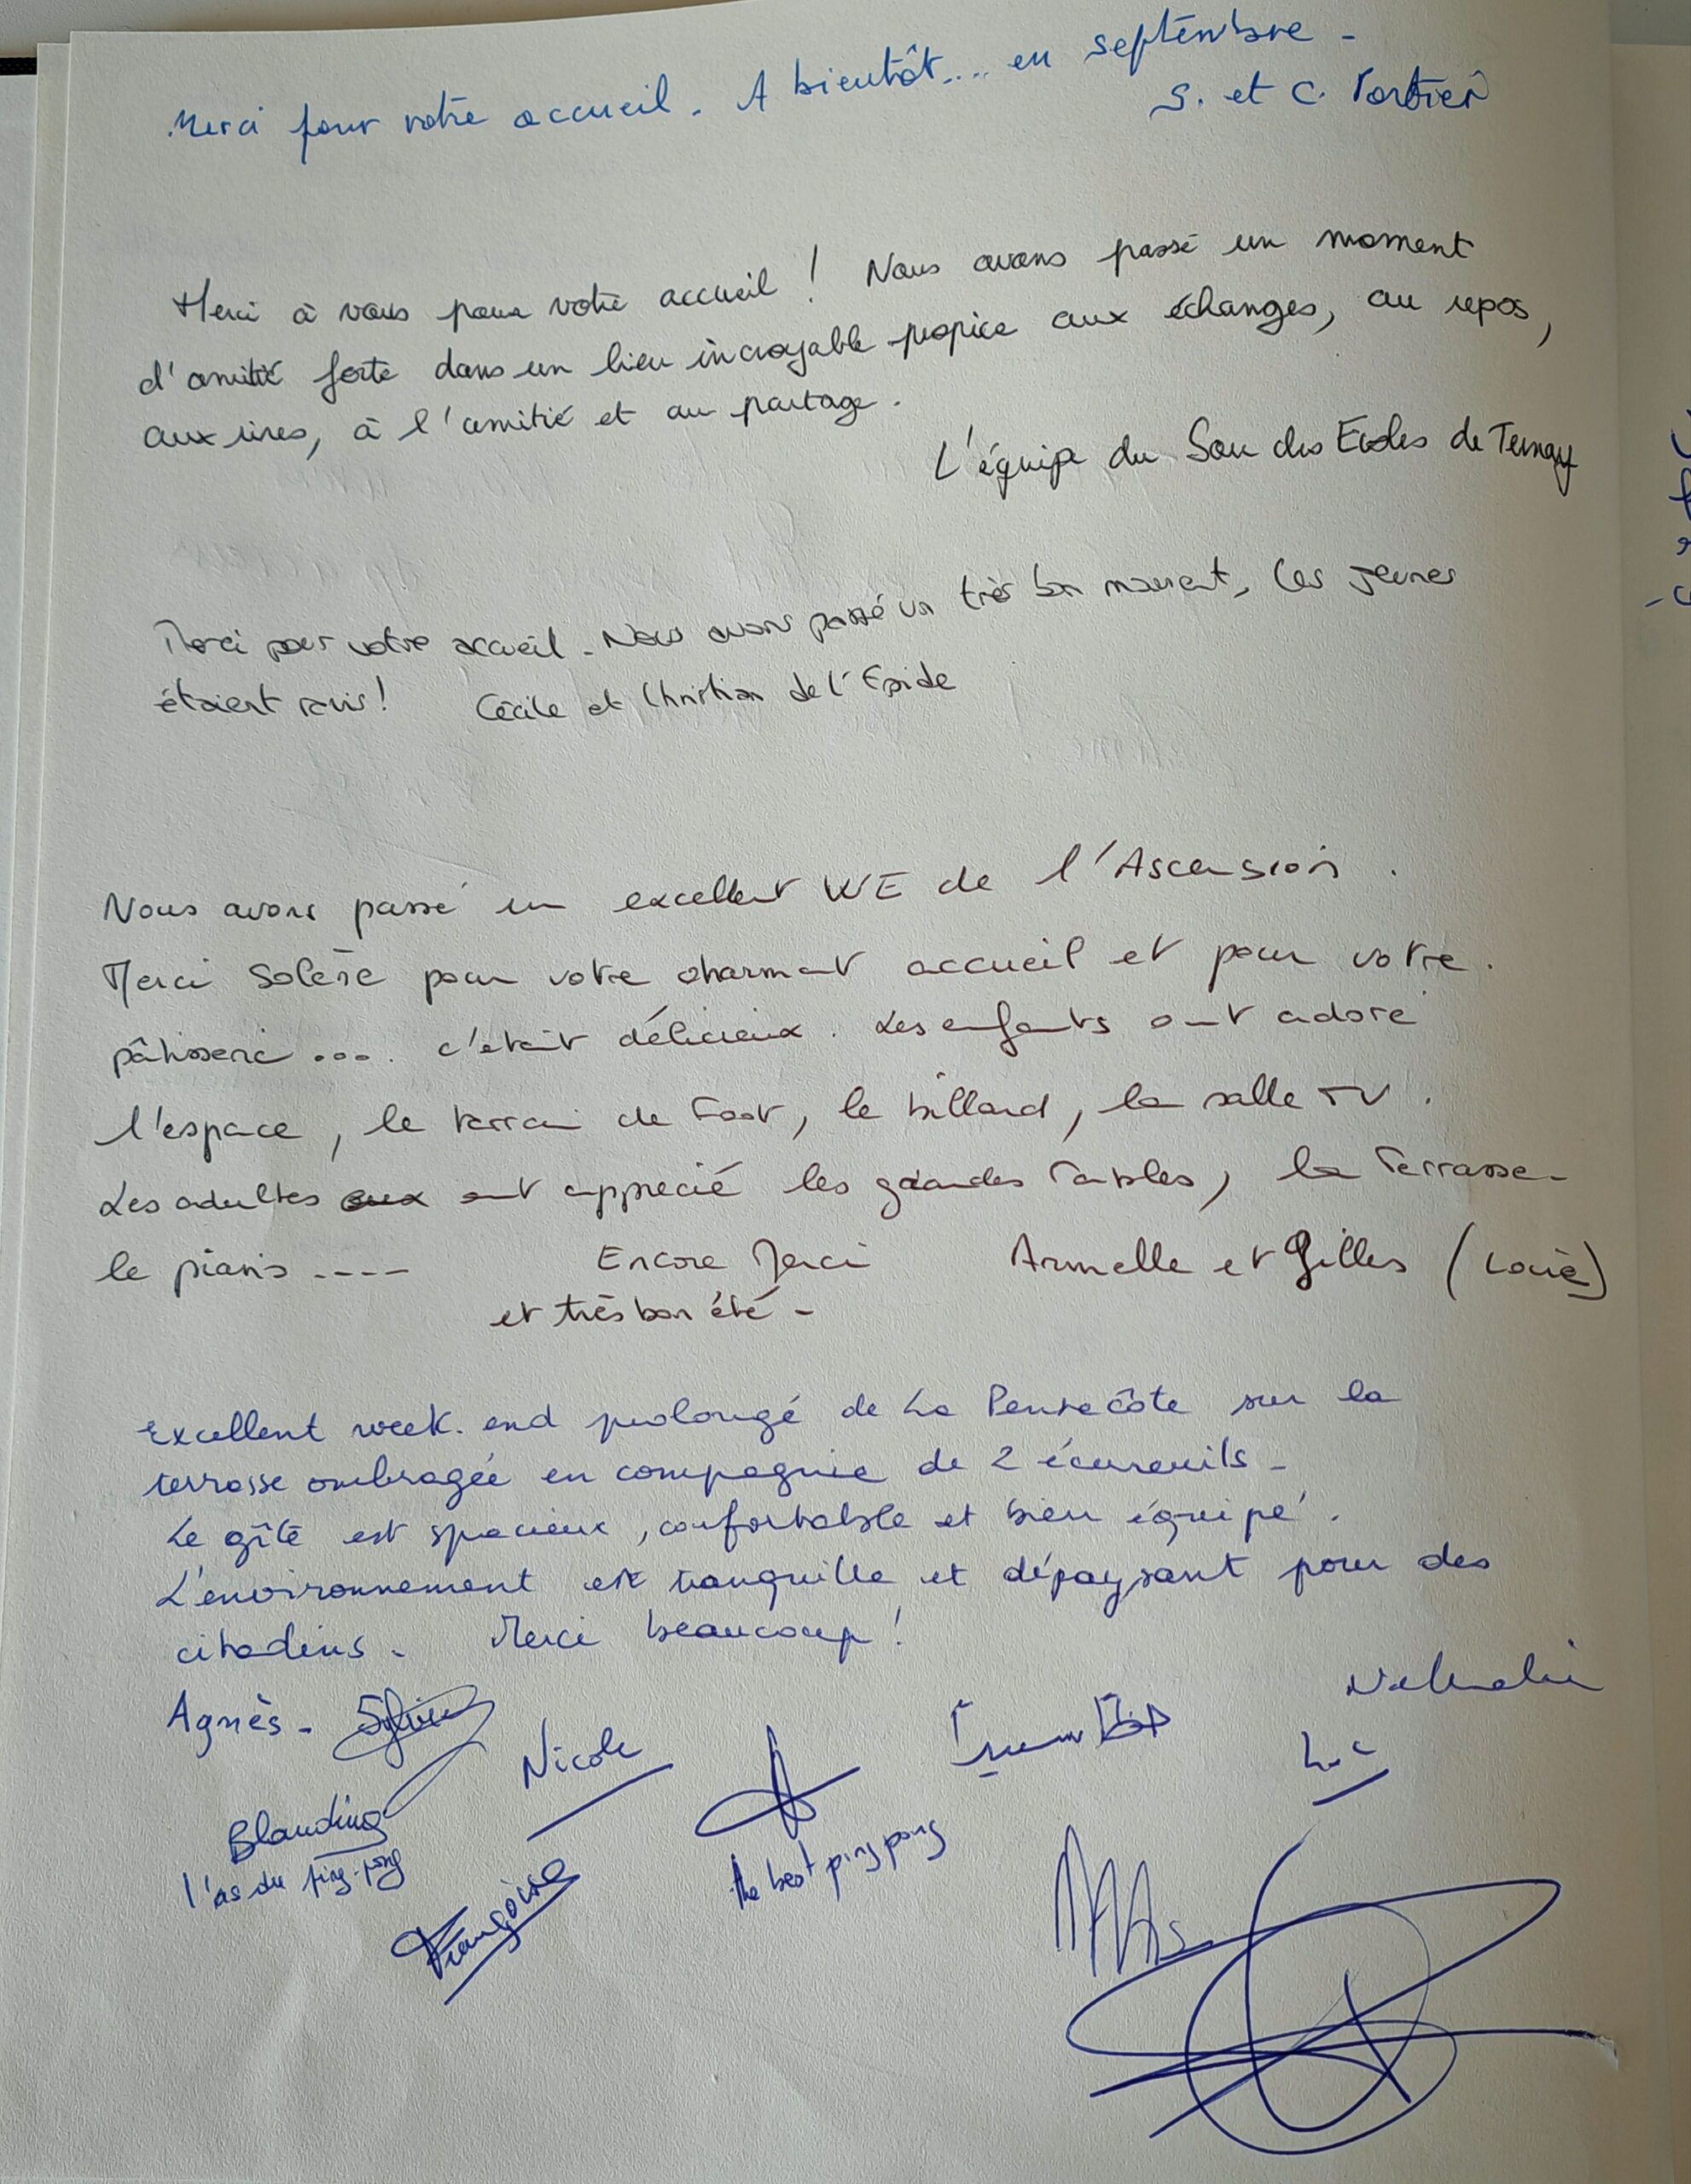 Merci pour votre accueil. A bientôt.... en septembre -
S. et C.
Merci à vous pour votre accueil ! Nous avons passé un moment
d'amitié forte dans un lieu incroyable propice aux échanges, au repos,
aux rires, à l'amitié et au partage.
L'équipe du Sou des Ecoles de Ternay
Merci pour votre accueil. Nous avons passé un très bon moment, les jeunes
étaient ravis ! Cécile et Christian de l'Epide
Nous avons passé un excellent WE de l'Ascension.
Merci Solène pour votre charmant accueil et pour votre
pâtisserie .... c'était délicieux. Les enfants ont adoré
l'espace, le terrain de Foot, le billard, la salle TV.
Les adultes eux ont apprecié les grandes Tables, la Terrasse
le piano ---- Encore Merci Armelle et Gilles (Loire)
et très bon été -
Excellent week.end prolongé de La Pentecôte sur la
terrasse ombragée en compagnie de 2 écureuils -
Le gîte est spacieux, confortable et bien équipé.
L'environnement est tranquille et dépaysant pour des
citadins. Merci beaucoup !
Agnès - Sylvie
Nicole
Luc
Blandine
l'as du ping-pong
the best ping pong
Françoise